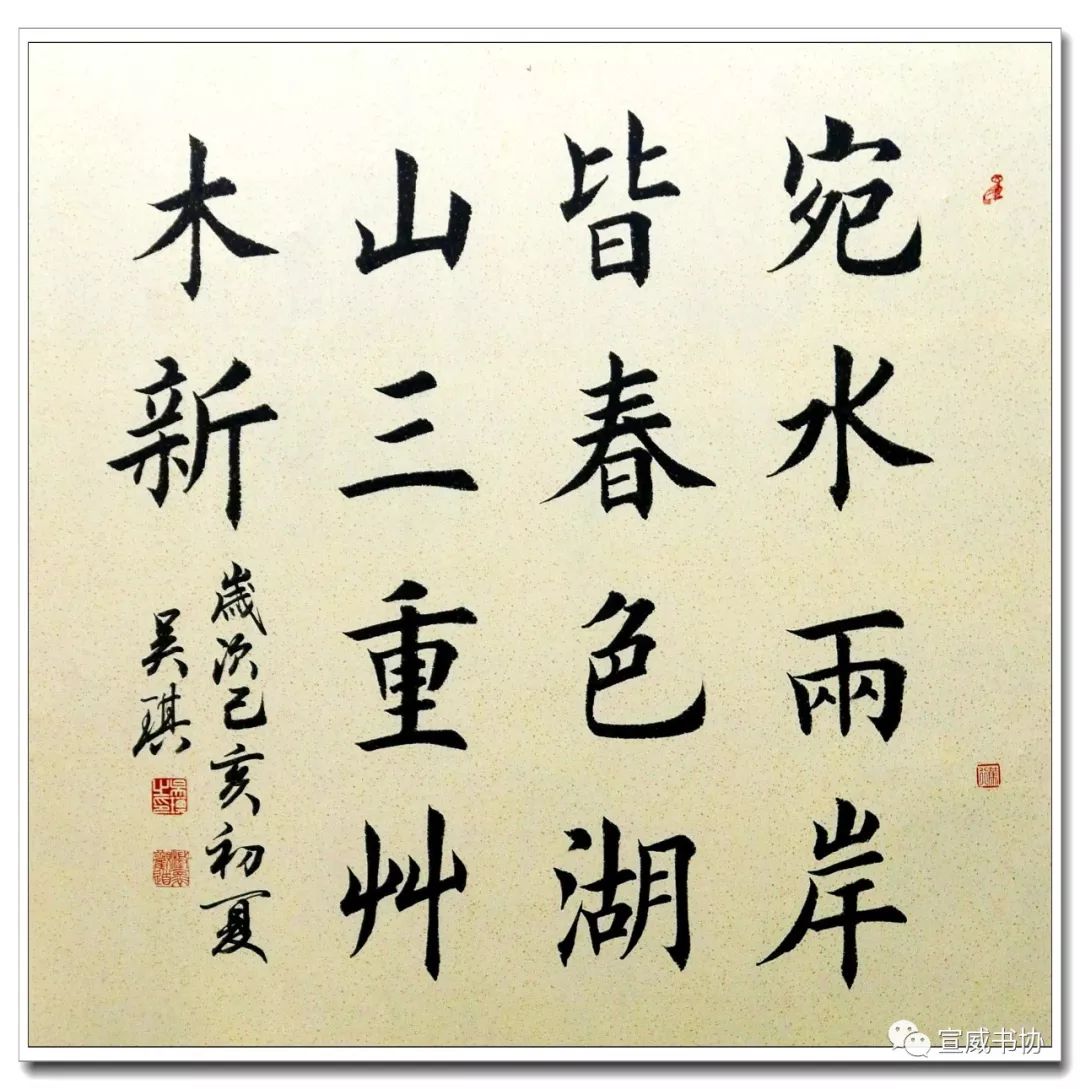 宛水兩岸
皆春色湖
山三重艸
木新
歲次己亥初夏
吴琪
宣威书协